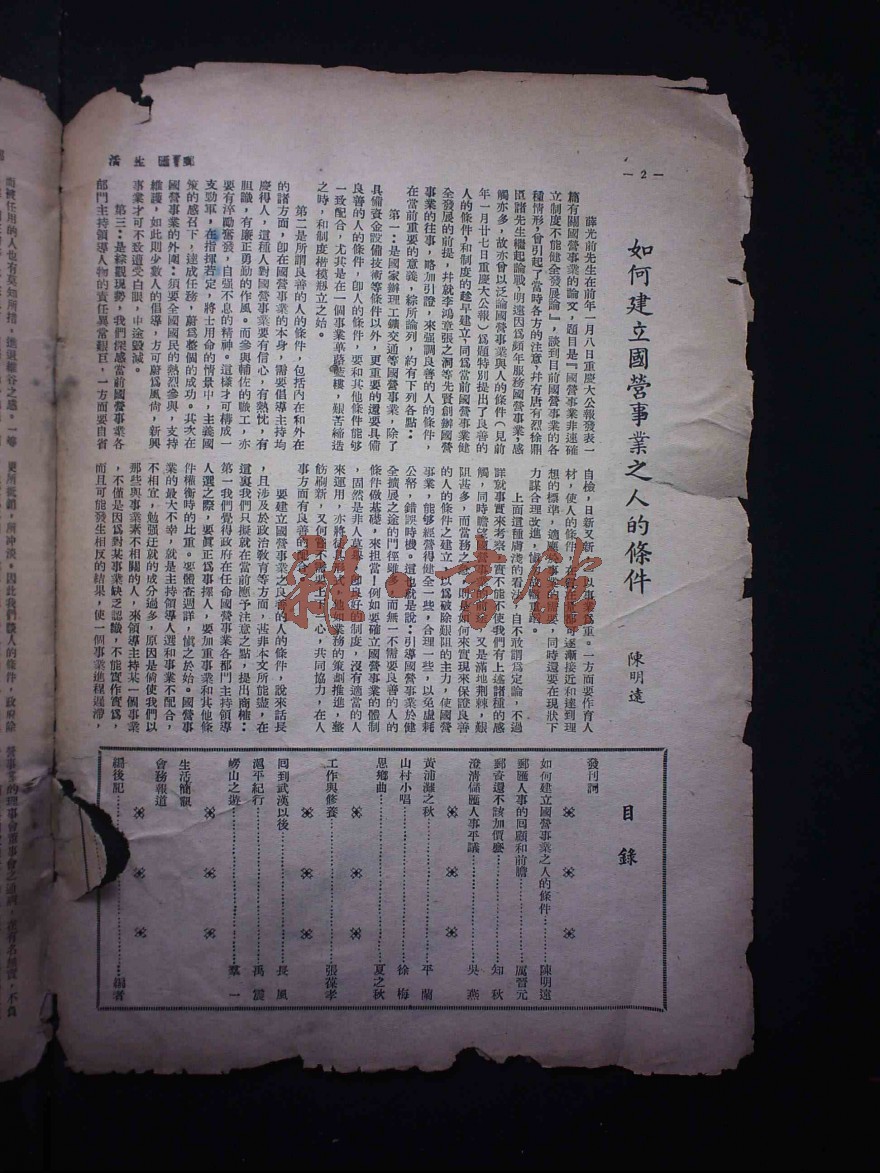 郵匯生活
—2—
如何建立國營事業之人的條件
陳明遠
薛光前先生在前年一月八日重慶大公報發表一
篇有關國營事業的論文，題目是『國營事業非速確
立制度不能健全發展論』，談到目前國營事業的各
種情形，曾引起了當時各方的注意，幷有唐有烈徐鼎
臣諸先生繼起論戰，明遠因爲頻年服務國營事業，感
觸亦多，故亦曾以泛論國營事業與人的條件（見前
年一月廿七日重慶大公報）爲題特別提出了良善的
人的條件，和制度的趁早建立，同爲當前國營事業健
全發展的前提，幷就李鴻章張之洞等先賢創辦國營
事業的往事，略加引證，來強調良善的人的條件，
在當前重要的意義，綜所論列，約有下列各點：
第一：是國家辦理工鑛交通等國營事業，除了
具備資金設備技術等條件以外，更重要的還要具備
良善的人的條件，卽人的條件，要和其他條件能够
一致配合，尤其是在一個事業蓽路藍樓，艱苦締造
之時，和制度楷模樹立之始。
第二是所謂良善的人的條件，包括內在和外在
的諸方面，卽在國營事業的本身，需要倡導主持均
慶得人，這種人對國營事業要有信心，有熱忱，有
胆識，有廉正勇勤的作風。而參與輔佐的職工，亦
要有淬勵奮發，自强不息的精神。這樣才可構成一
支勁軍，在指揮若定，將士用命的情景中，主義國
策的感召下，達成任務，蔚爲整個的成功。其次在
國營事業的外圍：須要全國國民的熱烈參與，支持
維護，如此則少數人的倡導，方可蔚爲風尚，新興
事業才可不致遭受白眼，中途毀滅。
第三：是綜觀現勢，我們深感當前國營事業各
部門主持領導人物的責任異常艱巨，一方面要自省
自檢，日新又新，以事業爲重。一方面要作育人
材，使人的條件，逐漸接近和達到理
想的標準，適應事業的需要，同時還要在現狀下
力謀合理改進，愼
上面這種膚淺的看法，自不敢謂爲定論，不過
詳就事實來考察，實不能不使我們有上述諸種的感
觸，同時瞻望國營事業的前途，又是滿地荆棘，艱
阻甚多，而當務之急，則是如何來實現來保證良善
的人的條件之建立，爲破除艱阻的主力，使國營
事業，能够經營得健全一些，合理一些，以免虛耗
公帑，錯誤時機。這也就是說：引導國營事業於健
全擴展之途的門徑雖多，而無一不需要良善的人的
條件做基礎，來担當！例如要確立國營事業的體制
，固然是非人莫舉，卽良好的制度，沒有適當的人
來運用，亦將徒具形式，他如業務的策劃推進，整
飭刷新，又何嘗不需要上下一心，共同協力，在人
事方面有良善的配合。
要建立國營事業之良善的人的條件，說來話長
，且涉及於政治教育等方面，甚非本文所能盡，在
這裏我們只擬就在當前應予注意之點，提出商榷：
第一我們覺得政府在任命國營事業各部門主持領導
人選之際，要眞正爲事擇人，要加重事業和其他條
件權衡時的比重。要體查週詳，愼之於始。國營事
業的最大不幸，就是主持領導人選和事業不配合，
不相宜，勉強迁就的成分過多，原因是倘使我們以
那些與事業素不相關的人，來領導主持某一個事業
，不僅是因爲對某事業缺乏認識，不能實作實爲，
而且可能發生相反的結果，使一個事業進程遲滯，
目錄
發刊詞
如何建立國營事業之人的條件………陳明遠
郵匯人事的回顧和前瞻………厲晉元
郵資還不該加價麼………知秋
澄清儲匯人事平議………吳燕
黃浦灘之秋………平蘭
山村小唱………徐梅
思鄉曲………夏之秋
工作與修養………張葆孝
回到武漢以後………長風
滬平紀行………禹震
嶗山之遊………羣一
生活簡訊
會務報道
編後記………編者
雜·書館